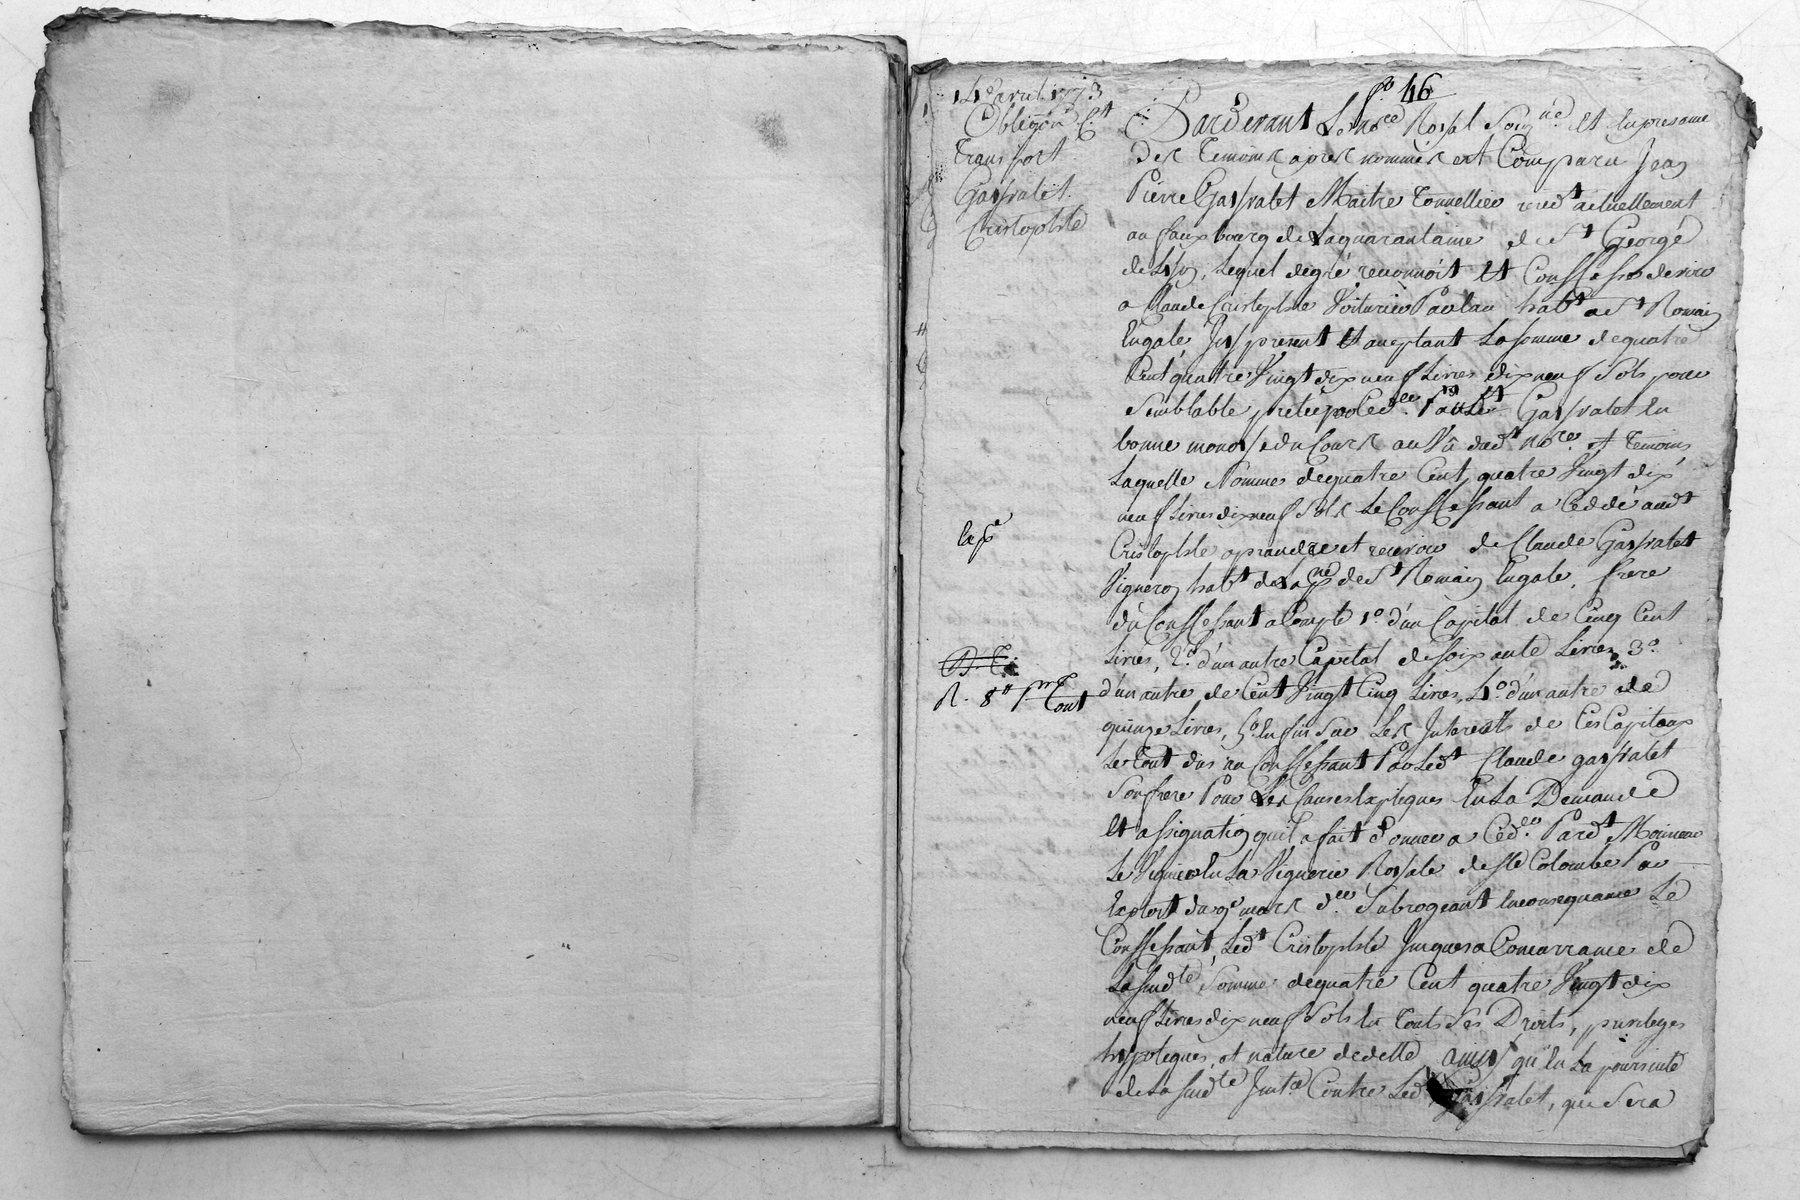 14e avril 1773
Obligõn Ct
Transport
Gayvalet
Cristophle
Expé
R. 8ll pr Tout
fo 46
Pardevant Le nore Royal Soigné Et En presence
des Temoins apres nommés est Comparu Jean
Pierre Gayvalet Maitre Tonnellier resdt actuellement
au fauxbourg de Laquarantaine de St George
de Lyon, Lequel degré reconnoit Et Conffesse devoir
a Claude Cristophle Voiturier Par Eau habt a St Romain
Engale Icy present Et aceptant La somme de quatre
Cent quatre Vingt dix neuf Livres dix neuf Sols pour
Semblable pretée Par Ledt Gayvalet En
bonne monoye du Cours au Vû dudt nore et Temoins
Laquelle Somme de quatre Cent quatre Vingt dix
neuf Livres dix neuf Sols Le Conffessant a Ceddé audt
Cristophle aprandre et recevoir de Claude Gayvalet
Vigneron habt de La pse de St Romain Engale, frere
du Conffessant a Compte 1o d'un Capital de Cinq Cent
Livres, 2o d'un autre Capital de soixante Livres, 3o
d'un autre de Cent Vingt Cinq Livres, 4o d'un autre de
quinze Livres, 5o Enfin Sur Les Interests de Ces Capitaux
Le Tout dus au Conffessant Par Ledt Claude gayvalet
Son frere Pour Les Causes Expliques En La Demande
Et assignation qu'il a fait Donner a Par dt
Le Viguier En La Viguerie Royale de Ste Colombe Par
Exploit du mars der Subrogeant En consequance Le
Conffessant, Ledt Cristophle Jusques a Concurrance de
La sudte Somme de quatre Cent quatre Vingt dix
neuf Livres dix neuf Sols En Touts Ses Droits, privileges
hypoteques, et nature de dette ainsy qu'En La poursuite
de La sudte Inste Contre Ledt Gayvalet, que Sera